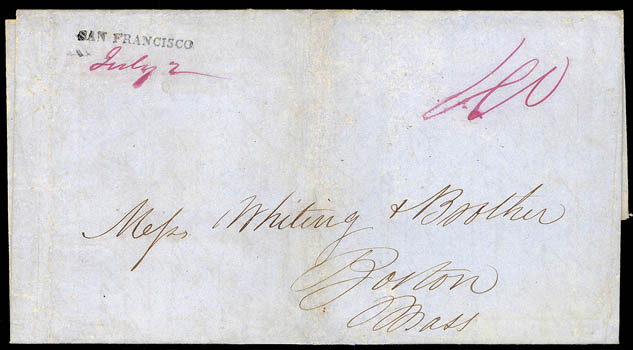 SAN FRANCISCO
July 2
Mess Whiting & Brother
Boston
Mass